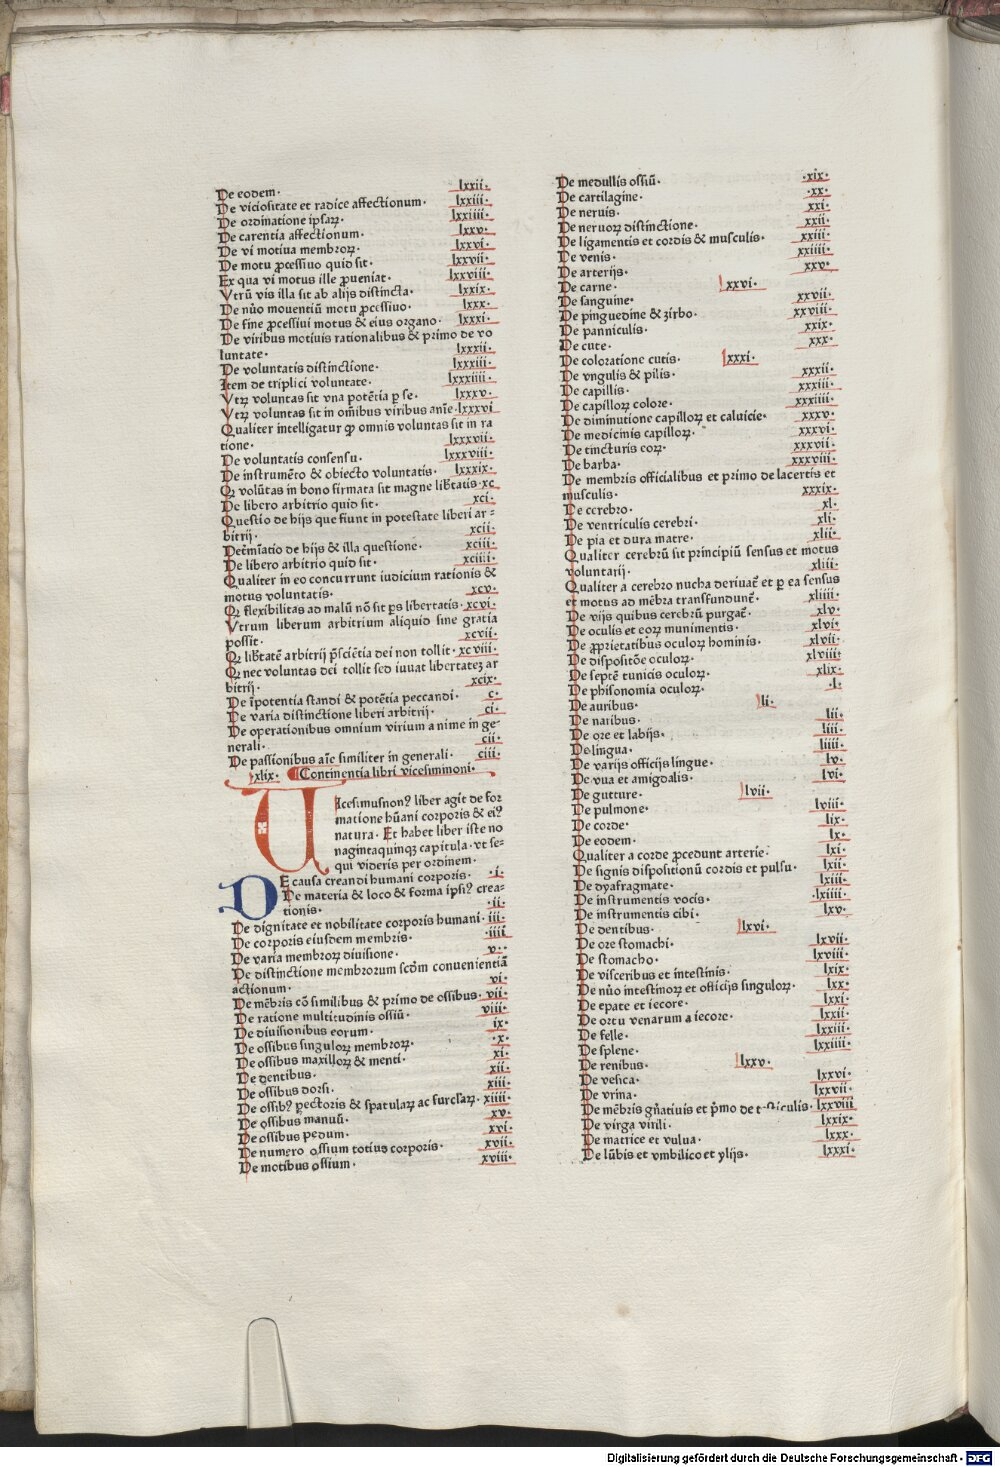 De eodem· lxxii·
De viciositate et radice affectionum· lxxiii·
De ordinatione ipsaꝝ· lxxiiii·
De carentia affectionum· lxxv·
De vi motiua membroꝝ· lxxvi·
De motu ꝓcessiuo quid sit· lxxvii·
Ex qua vi motus ille ꝓueniat· lxxviii·
Vtrū vis illa sit ab alijs distincta· lxxix·
De nūo mouentiū motu ꝓcessiuo· lxxx·
De fine ꝓcessiui motus & eius organo· lxxxi·
De viribus motiuis rationalibus & primo de vo
luntate· lxxxii·
De voluntatis distinctione· lxxxiii·
Item de triplici voluntate· lxxxiiii·
Vtꝝ voluntas sit vna potētia ꝑ se· lxxxv·
Vtꝝ voluntas sit in om̄ibus viribus anīe· lxxxvi
Qualiter intelligatur ꝙ omnis voluntas sit in ra
tione· lxxxvii·
De voluntatis consensu· lxxxviii·
De instrumēto & obiecto voluntatis· lxxxix·
Qꝝ volūtas in bono firmata sit magne lib̄tatis· xc
De libero arbitrio quid sit· xci·
Questio de hijs que fiunt in potestate liberi ar-
bitrij· xcii·
Deēm̄iatio de hijs & illa questione· xciii·
De libero arbitrio quid sit· xciiii·
Qualiter in eo concurrunt iudicium rationis &
motus voluntatis· xcv·
Qꝝ flexibilitas ad malū nō sit ꝑs libertatis· xcvi·
Vtrum liberum arbitrium aliquid sine gratia
possit· xcvii·
Qꝝ lib̄tatē arbitrij p̄sciētia dei non tollit· xcviii·
Qꝝ nec voluntas dei tollit sed iuuat libertateꝫ ar
bitrij· xcix·
De īpotentia standi & potētia peccandi· c·
De varia distinctione liberi arbitrij· ci·
De operationibus omnium virium anime in ge-
nerali· cii·
De passionibus aīe similiter in generali· ciii·
xlix· Continentia libri vicesiminoni·
Uicesimusnonꝰ liber agit de for
matione hūani corporis & eiꝰ
natura· Et habet liber iste no
nagintaquinqꝫ capitula· vt se-
qui videris per ordinem·
DE causa creandi humani corporis· ·i·
De materia & loco & forma ipsiꝰ crea-
tionis· ·ii·
De dignitate et nobilitate corporis humani· iii·
De corporis eiusdem membris· ·iiii·
De varia membroꝝ diuisione· v·
De distinctione membrorum scd̄m conuenientiā
actionum· vi·
De mēbris cōsimilibus & primo de ossibus· vii·
De ratione multitudinis ossiū· viii·
De diuisionibus eorum· ix·
De ossibus singuloꝝ membroꝝ· ·x·
De ossibus maxilloꝝ & menti· xi·
De dentibus· xii·
De ossibus dorsi· xiii·
De ossibꝰ pectoris & spatulaꝝ ac furclaꝝ· xiiii·
De ossibus manuū· xv·
De ossibus pedum· xvi·
De numero ossium totius corporis· xvii·
De motibus ossium· xviii·
De medullis ossiū· ·xix·
De cartilagine· ·xx·
De neruis· xxi·
De neruoꝝ distinctione· xxii·
De ligamentis et cordis & musculis· xxiii·
De venis· xxiiii·
De arterijs· xxv·
De carne· xxvi·
De sanguine· xxvii·
De pinguedine & zirbo· xxviii·
De panniculis· xxix·
De cute· xxx·
De coloratione cutis· xxxi·
De vngulis & pilis· xxxii·
De capillis· xxxiii·
De capilloꝝ colore· xxxiiii·
De diminutione capilloꝝ et caluicie· xxxv·
De medicinis capilloꝝ· xxxvi·
De tincturis eoꝝ· xxxvii·
De barba· xxxviii·
De membris officialibus et primo de lacertis et
musculis· xxxix·
De cerebro· xl·
De ventriculis cerebri· xli·
De pia et dura matre· xlii·
Qualiter cerebrū sit principiū sensus et motus
voluntarij· xliii·
Qualiter a cerebro nucha deriuat̄ et ꝑ ea sensus
et motus ad mēbra transfundunt̄· xliiii·
De vijs quibus cerebrū purgat̄· xlv·
De oculis et eoꝝ munimentis· xlvi·
De ꝓprietatibus oculoꝝ hominis· xlvii·
De dispositōe oculoꝝ· xlviii·
De septē tunicis oculoꝝ· xlix·
De phisonomia oculoꝝ· ·l·
De auribus· li·
De naribus· lii·
De ore et labijs· liii·
De lingua· liiii·
De varijs officijs lingue· lv·
De vua et amigdalis· lvi·
De gutture· lvii·
De pulmone· lviii·
De corde· lix·
De eodem· lx·
Qualiter a corde ꝓcedunt arterie· lxi·
De signis dispositionū cordis et pulsu· lxii·
De dyafragmate· lxiii·
De instrumentis vocis· ·lxiiii·
De instrumentis cibi· lxv·
De dentibus· lxvi·
De ore stomachi· lxvii·
De stomacho· lxviii·
De visceribus et intestinis· lxix·
De nūo intestinoꝝ et officijs singuloꝝ· lxx·
De epate et iecore· lxxi·
De ortu venarum a iecore· lxxii·
De felle· lxxiii·
De splene· lxxiiii·
De renibus· lxxv·
De vesica· lxxvi·
De vrina· lxxvii·
De mēbris gn̄atiuis et p̄mo de testiculis· lxxviii
De virga virili· lxxix·
De matrice et vulua· lxxx·
De lūbis et vmbilico et ylijs· lxxxi·
Digitalisierung gefördert durch die Deutsche Forschungsgemeinschaft · DFG